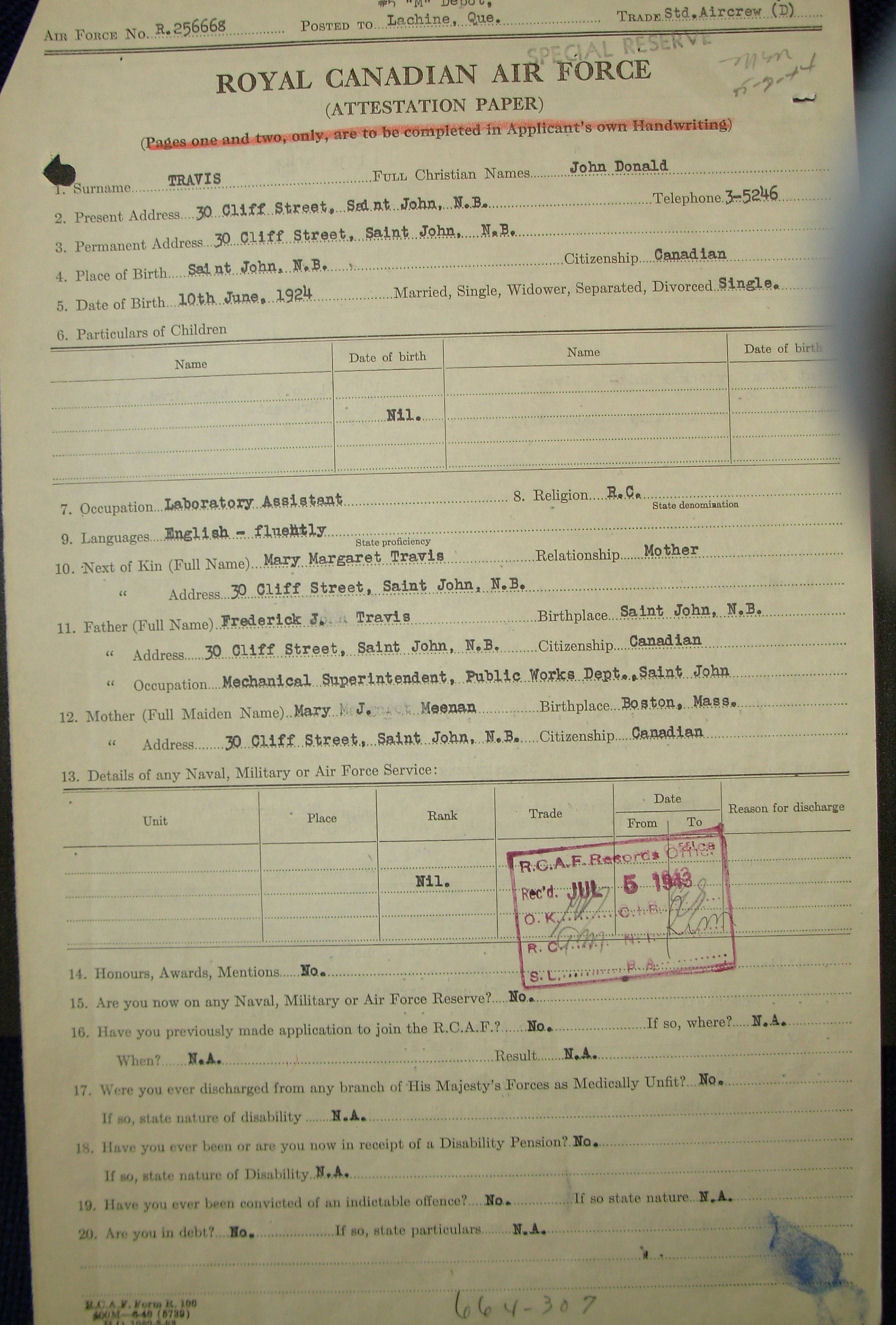 #5 "M" Depot,
AIR FORCE NO. R.256668 POSTED TO Lachine, Que. TRADE Std. Aircrew (D)
SPECIAL RESERVE
ROYAL CANADIAN AIR FORCE
(ATTESTATION PAPER)
(Pages one and two, only, are to be completed in Applicant's own Handwriting)
1. Surname TRAVIS FULL Christian Names John Donald
2. Present Address 30 Cliff Street, Saint John, N.B. Telephone 3-5246
3. Permanent Address 30 Cliff Street, Saint John, N.B.
4. Place of Birth Saint John, N.B. Citizenship Canadian
5. Date of Birth 10th June, 1924 Married, Single, Widower, Separated, Divorced Single.
6. Particulars of Children
Name Date of birth Name Date of birth
Nil.
7. Occupation Laboratory Assistant 8. Religion R.C.
State denomination
9. Languages English - fluently
State proficiency
10. Next of Kin (Full Name) Mary Margaret Travis Relationship Mother
" Address 30 Cliff Street, Saint John, N.B.
11. Father (Full Name) Frederick J. Travis Birthplace Saint John, N.B.
" Address 30 Cliff Street, Saint John, N.B. Citizenship Canadian
" Occupation Mechanical Superintendent, Public Works Dept., Saint John
12. Mother (Full Maiden Name) Mary J. Meenan Birthplace Boston, Mass.
" Address 30 Cliff Street, Saint John, N.B. Citizenship Canadian
13. Details of any Naval, Military or Air Force Service:
Unit Place Rank Trade Date Reason for discharge
From To
Nil.
R.C.A.F. Records Office
Rec'd. JUL 5 1943
O.K.
R.C.
S.L.
14. Honours, Awards, Mentions No.
15. Are you now on any Naval, Military or Air Force Reserve? No.
16. Have you previously made application to join the R.C.A.F.? No. If so, where? N.A.
When? N.A. Result N.A.
17. Were you ever discharged from any branch of His Majesty's Forces as Medically Unfit? No.
If so, state nature of disability N.A.
18. Have you ever been or are you now in receipt of a Disability Pension? No.
If so, state nature of Disability N.A.
19. Have you ever been convicted of an indictable offence? No. If so state nature N.A.
20. Are you in debt? No. If so, state particulars N.A.
R.C.A.F. Form R. 100
664-307